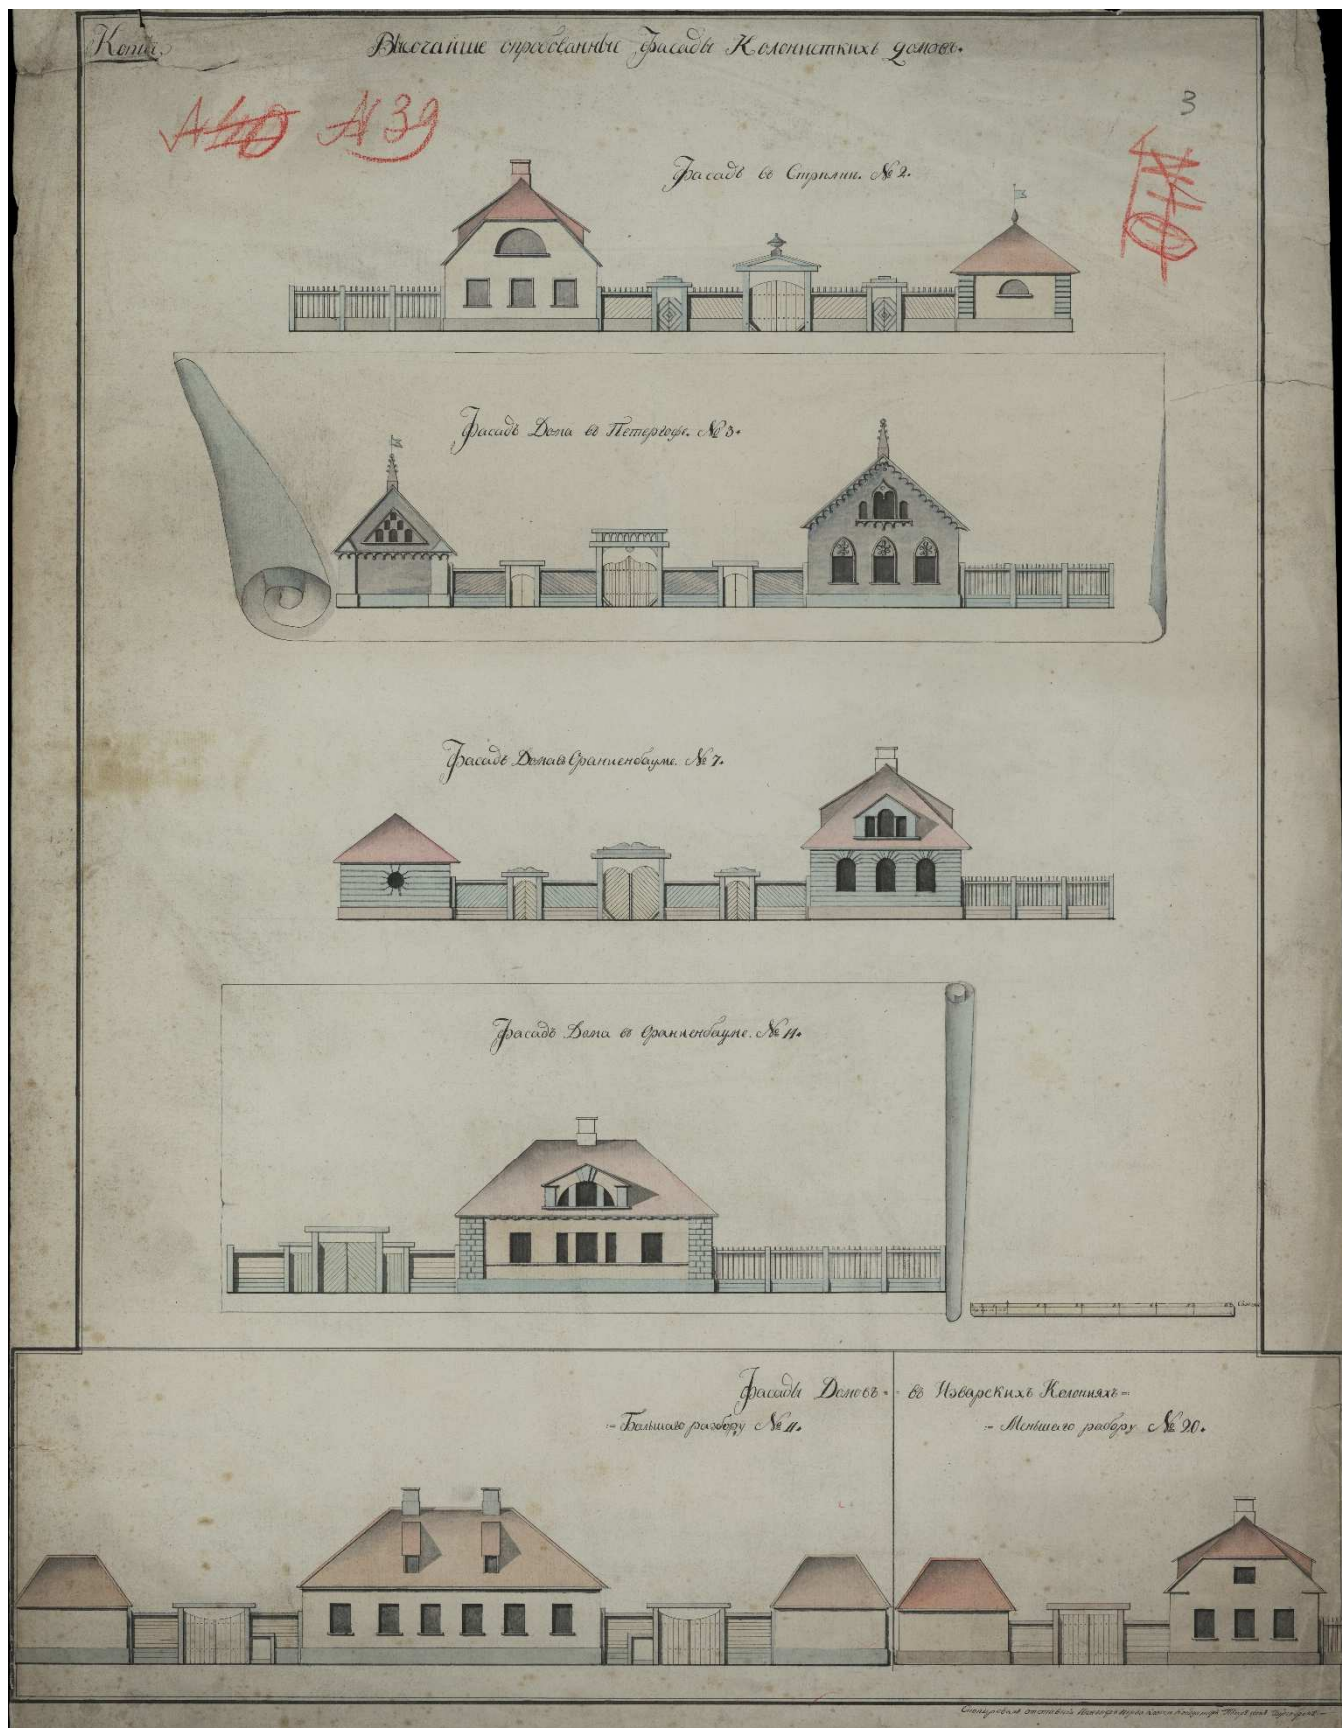 Копія.
Высочайше опробованные Фасады Колонисткихъ домовъ.
№ 40 № 39
3
№ 40
Фасадъ въ Стрѣлни. № 2.
Фасадъ Дома въ Петергофѣ. № 3.
Фасадъ Дома въ Ораниенбаумѣ. № 7.
Фасадъ Дома въ Ораниенбаумѣ. № 11.
Фасады Домовъ въ Ижварскихъ Колонияхъ
Большаго разбору № 11.
Меньшаго разбору № 20.